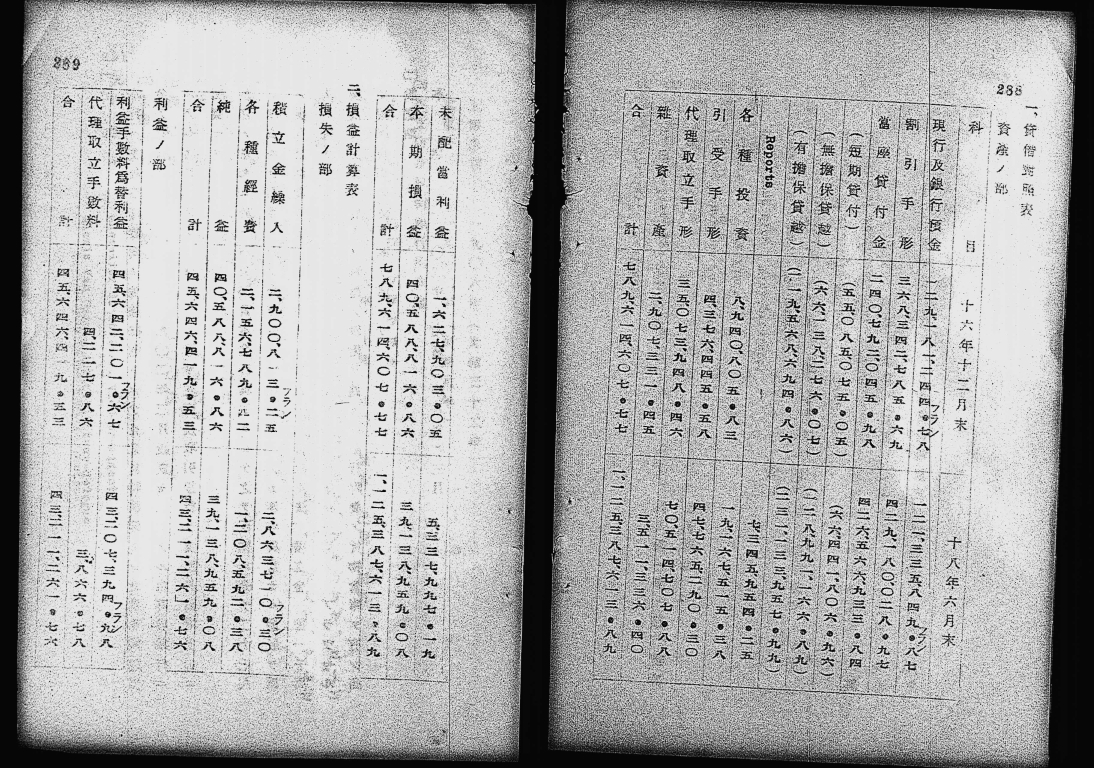 288
一、貸借對照表
資産ノ部
科目 十六年十二月末 十八年六月末
現行及銀行預金 一二九、一八一、二四四・七八フラン 一一二、三三五、八四九・八七フラン
割引手形 三六八、三四二、七八五・六九 四二九、一八〇、〇二八・九七
當座貸付金 二四〇、七九二、〇四五・九八 四二六、五六六、九三三・八四
(短期貸付) (五五、〇八五、〇七五・〇五) (六四、四四一、八〇六・九六)
(無擔保貸越) (六六、一三八、二七六・〇七) (一二八、九九一、一六六・八九)
(有擔保貸越) (一一九、五六八、六九四・八六) (二三三、一三三、九五七・九九)
Reports 七、三四五、九五四・二五
各種投資 八、九四〇、八〇五・八三 一九、一六七、五一五・三八
引受手形 四、三七六、四四五・五八 四七、七六五、二九〇・三〇
代理取立手形 三五、〇七三、九四八・四六 七〇、五一四、七〇七・八八
雜資産 二、九〇七、三三一・四五 三、五一一、三三六・四〇
合計 七八九、六一四、六〇七・七七 一、一二五、三八七、六一三・八九
289
未配當利益 一、六二七、九〇三・〇五 五、三三七、九九七・一九
本期損益 四〇、五八八、八一六・八六 三九、一三八、九五九・〇八
合計 七八九、六一四、六〇七・七七 一、一二五、三八七、六一三・八九
二、損益計算表
損失ノ部
積立金繰入 二、九〇〇、八一三・二五フラン 二、八六三、七一〇・三〇フラン
各種經費 二、一五六、七八九・四二 一、二〇八、五九二・三八
純益 四〇、五八八、八一六・八六 三九、一三八、九五九・〇八
合計 四五、六四六、四一九・五三 四三、二一一、二六一・七六
利益ノ部
利益手數料爲替利益 四五、六四二、二〇一・六七フラン 四三、二〇七、三九四・九八フラン
代理取立手數料 四、二一七・八六 三、八六六・七八
合計 四五、六四六、四一九・五三 四三、二一一、二六一・七六